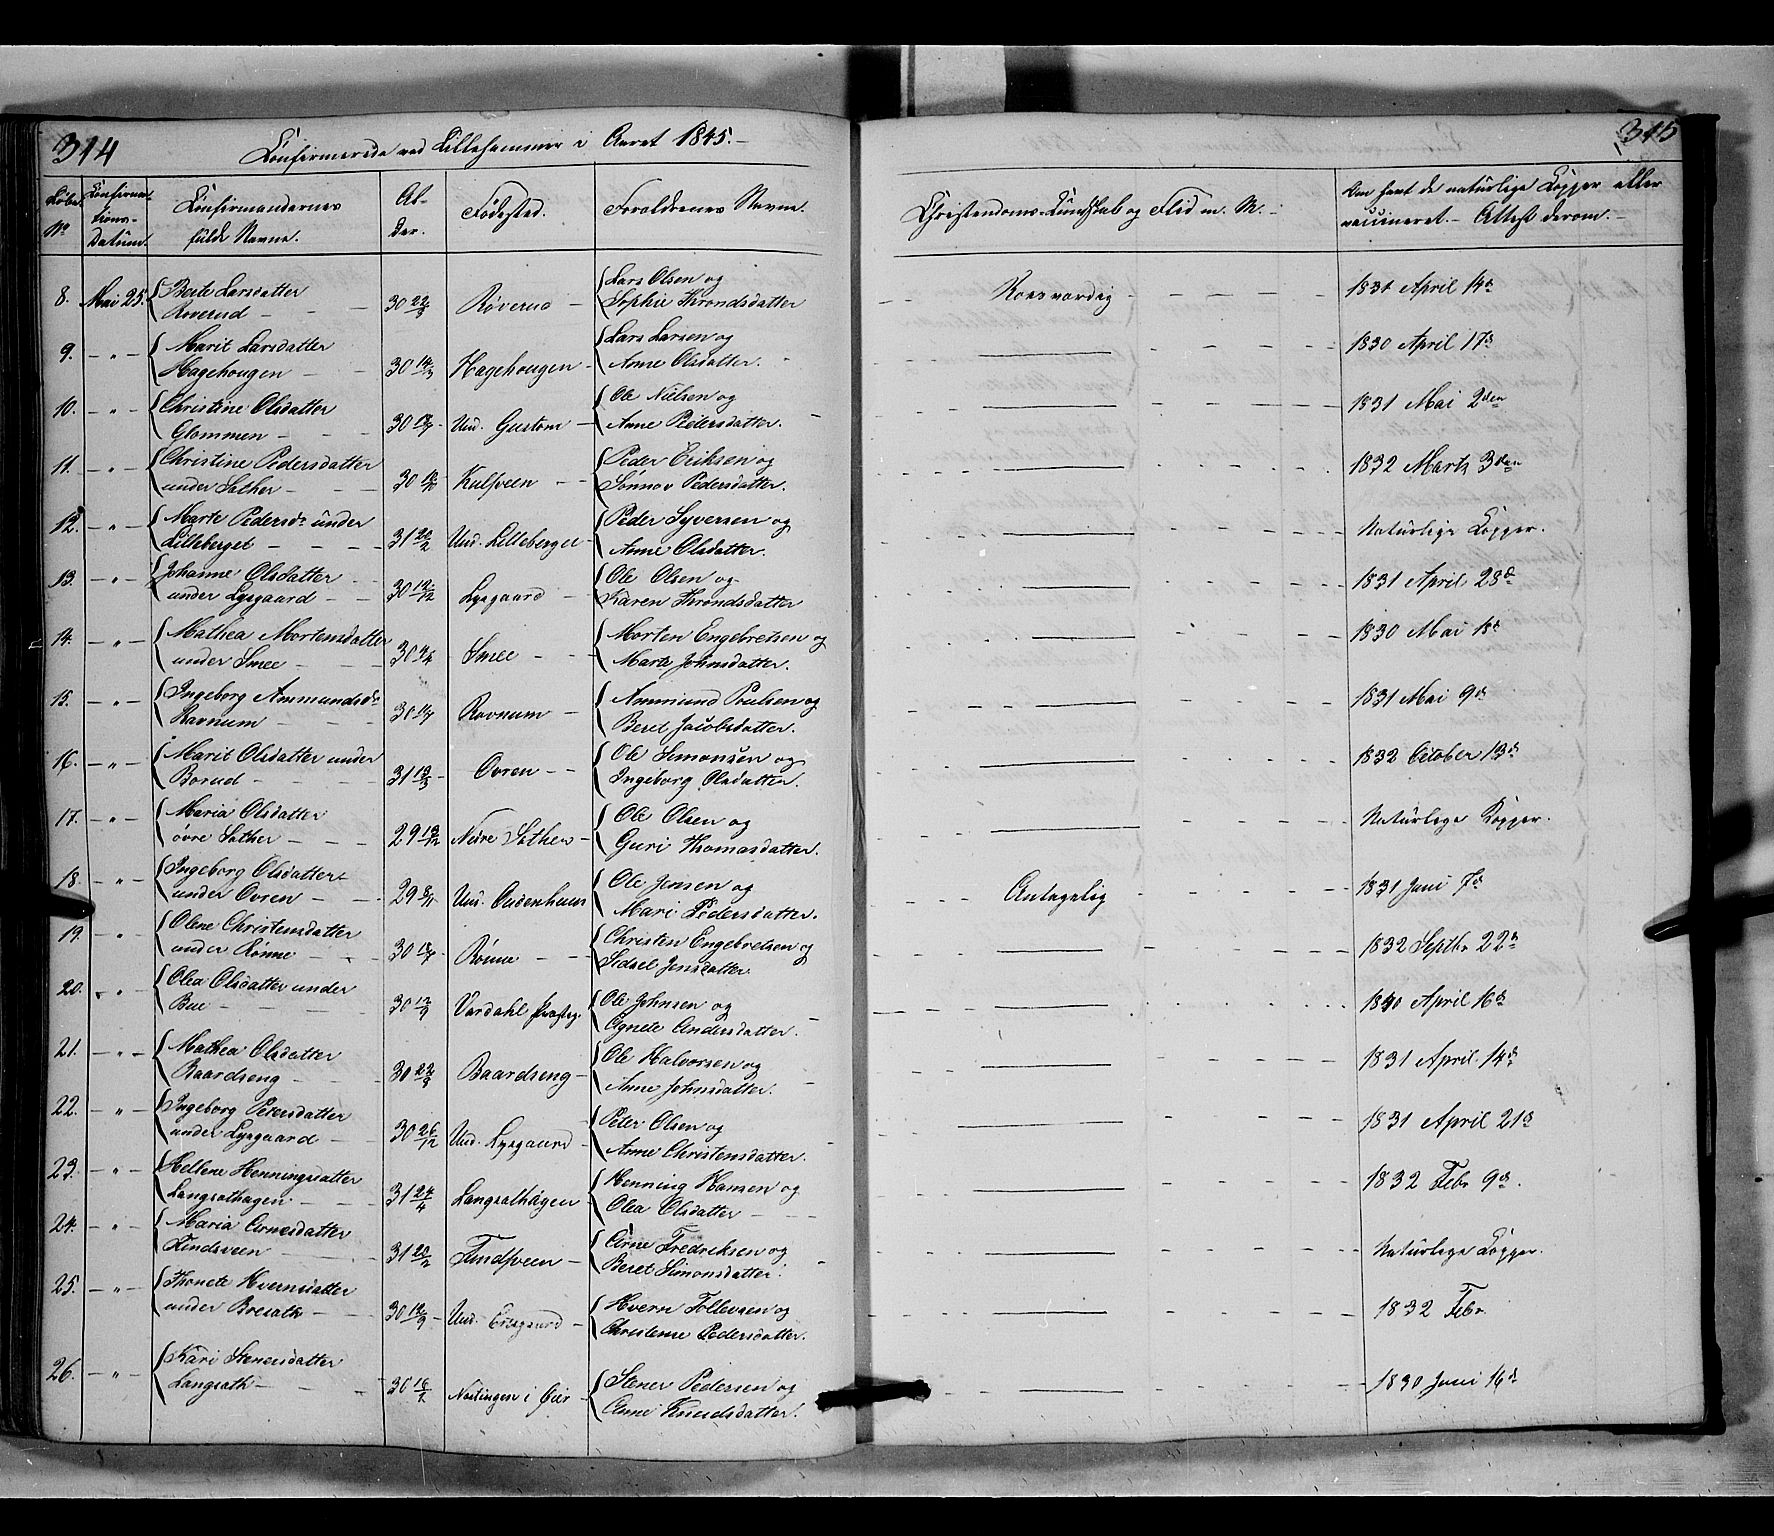 314
Confirmerede ved Lillehammer i Aaret 1845.-
Løbe No
Confirma-tions-Datum.
Confirmandernes fulde Navne.
Al-der.
Fødested.
Forældrenes Navne.
8. Mai 25. Berte Larsdatter Roverud 30 22/3 Røverud Lars Olsen og Sophie Throndsdatter
9. - " - Marit Larsdatter Hagehougen 30 14/3 Hagehougen Lars Larsen og Anne Olsdatter.
10. - " - Christine Olsdatter Glommen Und. Gustom Ole Nielsen og Anne Pedersdatter.
11. - " - Christine Pedersdatter under Sather Kulsveen Peder Eriksen og Sønnov Pedersdatter.
12. - " - Marte Pedersdr under Lilleberget Und. Lilleberget Peder Syversen og Anne Olsdatter.
13. - " - Johanne Olsdatter under Lysgaard 30 12/12 Lysgaard Ole Olsen og Karen Throndsdatter
14. - " - Mathea Mortensdatter under Smee Smee Morten Engebretsen og Marte Johnsdatter.
15. - " - Ingeborg Ammundsdr Ravnum Rovnum Ammund Poulsen og Beret Jacobsdatter.
16. - " - Marit Olsdatter under Borud Ovren Ole Simonsen og Ingeborg Olsdatter.
17. - " - Maria Olsdatter øvre Sather Nedre Sather Ole Olsen og Guri Thomasdatter.
18. - " - Ingeborg Olsdatter under Ovren Ole Jensen og Mari Pedersdatter.
19. - " - Olene Christensdatter under Rønne Rønne Christen Engebretsen og Sidsel Jensdatter
20. - " - Olea Olsdatter under Bue Vardahl Præsteg. Ole Johnsen og Agnete Andersdatter.
21. - " - Mathea Olsdatter Baardseng 30 22/3 Baardseng Ole Halvorsen og Anne Johnsdatter.
22. - " - Ingeborg Petersdatter under Lysgaard 30 26/12 Und. Lysgaard Peter Olsen og Anne Christensdatter.
23. - " - Hellene Henningsdatter Langsathagen. 31 24/4 Langsathagen Henning Hansen og Olea Olsdatter
24. - " - Maria Arnesdatter Tindsveen 31 20/2 Tindsveen Arne Fredriksen og Beret Simonsdatter.
25. - " - Thonete Hvernsdatter under Bresath Und. Hvern Tollevsen og Christense Pedersdatter.
26. - " - Kari Stenersdatter Langsath 30 16/2 i Øier Stener Pedersen og Anne Knudsdatter.
315
Christendoms-Kundskab og Flid m. M.
Om havt de naturlige Kopper eller vaccineret. - Attest derom.
Roesværdig 1831 April 14de
1830 April 17de
1831 Mai 2den
1832 Marts 3die
Naturlige Kopper.
1831 April 28de
1830 Mai 1ste
1831 Mai 9de
1832 October 13de
Naturlige Kopper.
Antagelig 1831 Juni 7de
1832 Septbr 22de
1840 April 16de
1831 April 14de
1831 April 21de
1832 Febr 9de.
Naturlige Kopper.
1832 Febr
1830 Juni 16de